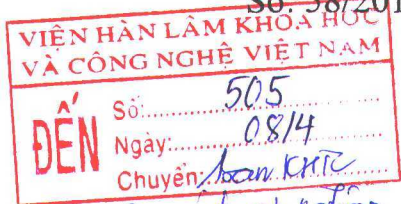 Số: 58/201
VIỆN HÀN LÂM KHOA HỌC
VÀ CÔNG NGHỆ VIỆT NAM
ĐẾN
Số: 505
Ngày: 08/4
Chuyển: Ban KHTC